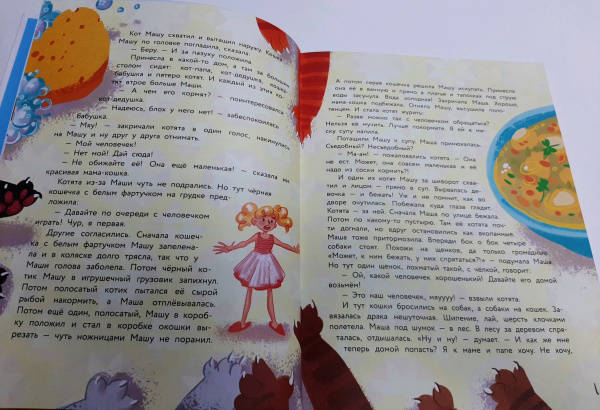 Кот Машу схватил и вытащил наружу.
Машу по головке погладила, сказала:
— Беру. — И за пазуху положила.
Принесла в какой-то дом, а там за большим
столом сидят: кот-папа, кот-дедушка, кошка-
бабушка и пятеро котят. И каждый из этих ко-
тят втрое больше Маши.
— А чем его кормят? — поинтересовался
кот-дедушка.
— Надеюсь, блох у него нет! — забеспокоилась
бабушка.
— Мяу! — закричали котята в один голос, накинулись
на Машу и ну друг у друга отнимать.
— Мой человечек!
— Нет мой! Дай сюда!
— Не обижайте её! Она ещё маленькая! — сказала им
красивая мама-кошка.
Котята из-за Маши чуть не подрались. Но тут чёрная
кошечка с белым фартучком на грудке пред-
ложила:
— Давайте по очереди с человечком
играть! Чур, я первая.
Другие согласились. Сначала кошеч-
ка с белым фартучком Машу запелена-
ла и в коляске долго трясла, так что у
Маши голова заболела. Потом чёрный ко-
тик Машу в игрушечный грузовик запихнул.
Потом полосатый котик пытался её сырой
рыбой накормить, а Маша отплёвывалась.
Потом ещё один, полосатый, Машу в короб-
ку положил и стал в коробке окошки вы-
резать — чуть ножницами Машу не поранил.
А потом серая кошечка решила Машу искупать. Принесла
она её в ванную и прямо в платье и тапочках под струю
воды засунула. Вода холодная! Закричала Маша. Хорошо,
мама-кошка подбежала. Отняла Машу, высушила поло-
тенцем. И стала котят журить:
— Разве можно так с человечком обращаться?
Нельзя её мучить. Лучше покормите. Я ей к ми-
ску супу налила.
Потащили Машу к супу. Маша принюхалась.
Съедобный? Несъедобный?
— Ма-ам! — пожаловались котята. — Она
не ест. Может, она совсем маленькая и её
надо из соски кормить?!
И один из котят Машу за шиворот схва-
тил и лицом — прямо в суп. Вырвалась де-
вочка — и бежать! Уж и не помнит, как во
дворе очутилась. Побежала куда глаза глядят.
Котята — за ней. Сначала Маша по улице бежала.
Потом по какому-то пустырю. Там её котята поч-
ти догнали, но вдруг остановились как вкопанные.
Маша тоже притормозила. Впереди бок о бок четыре
собаки стоят. Похожи на щенков, да только громадные.
«Может, к ним бежать, у них спрятаться?» — подумала Маша.
Но тут один щенок, лохматый такой, с чёлкой, говорит:
— Ой, какой человечек хорошенький! Давайте его домой
возьмём!
— Это наш человечек, мауууу! — взвыли котята.
И тут кошки бросились на собак, а собаки на кошек. За-
вязалась драка нешуточная. Шипение, лай, шерсть клочками
полетела. Маша под шумок — в лес. В лесу за деревом спря-
талась, отдышалась. «Ну и ну! — думает. — И как же мне
теперь домой попасть? Я к маме и папе хочу. Не хочу,